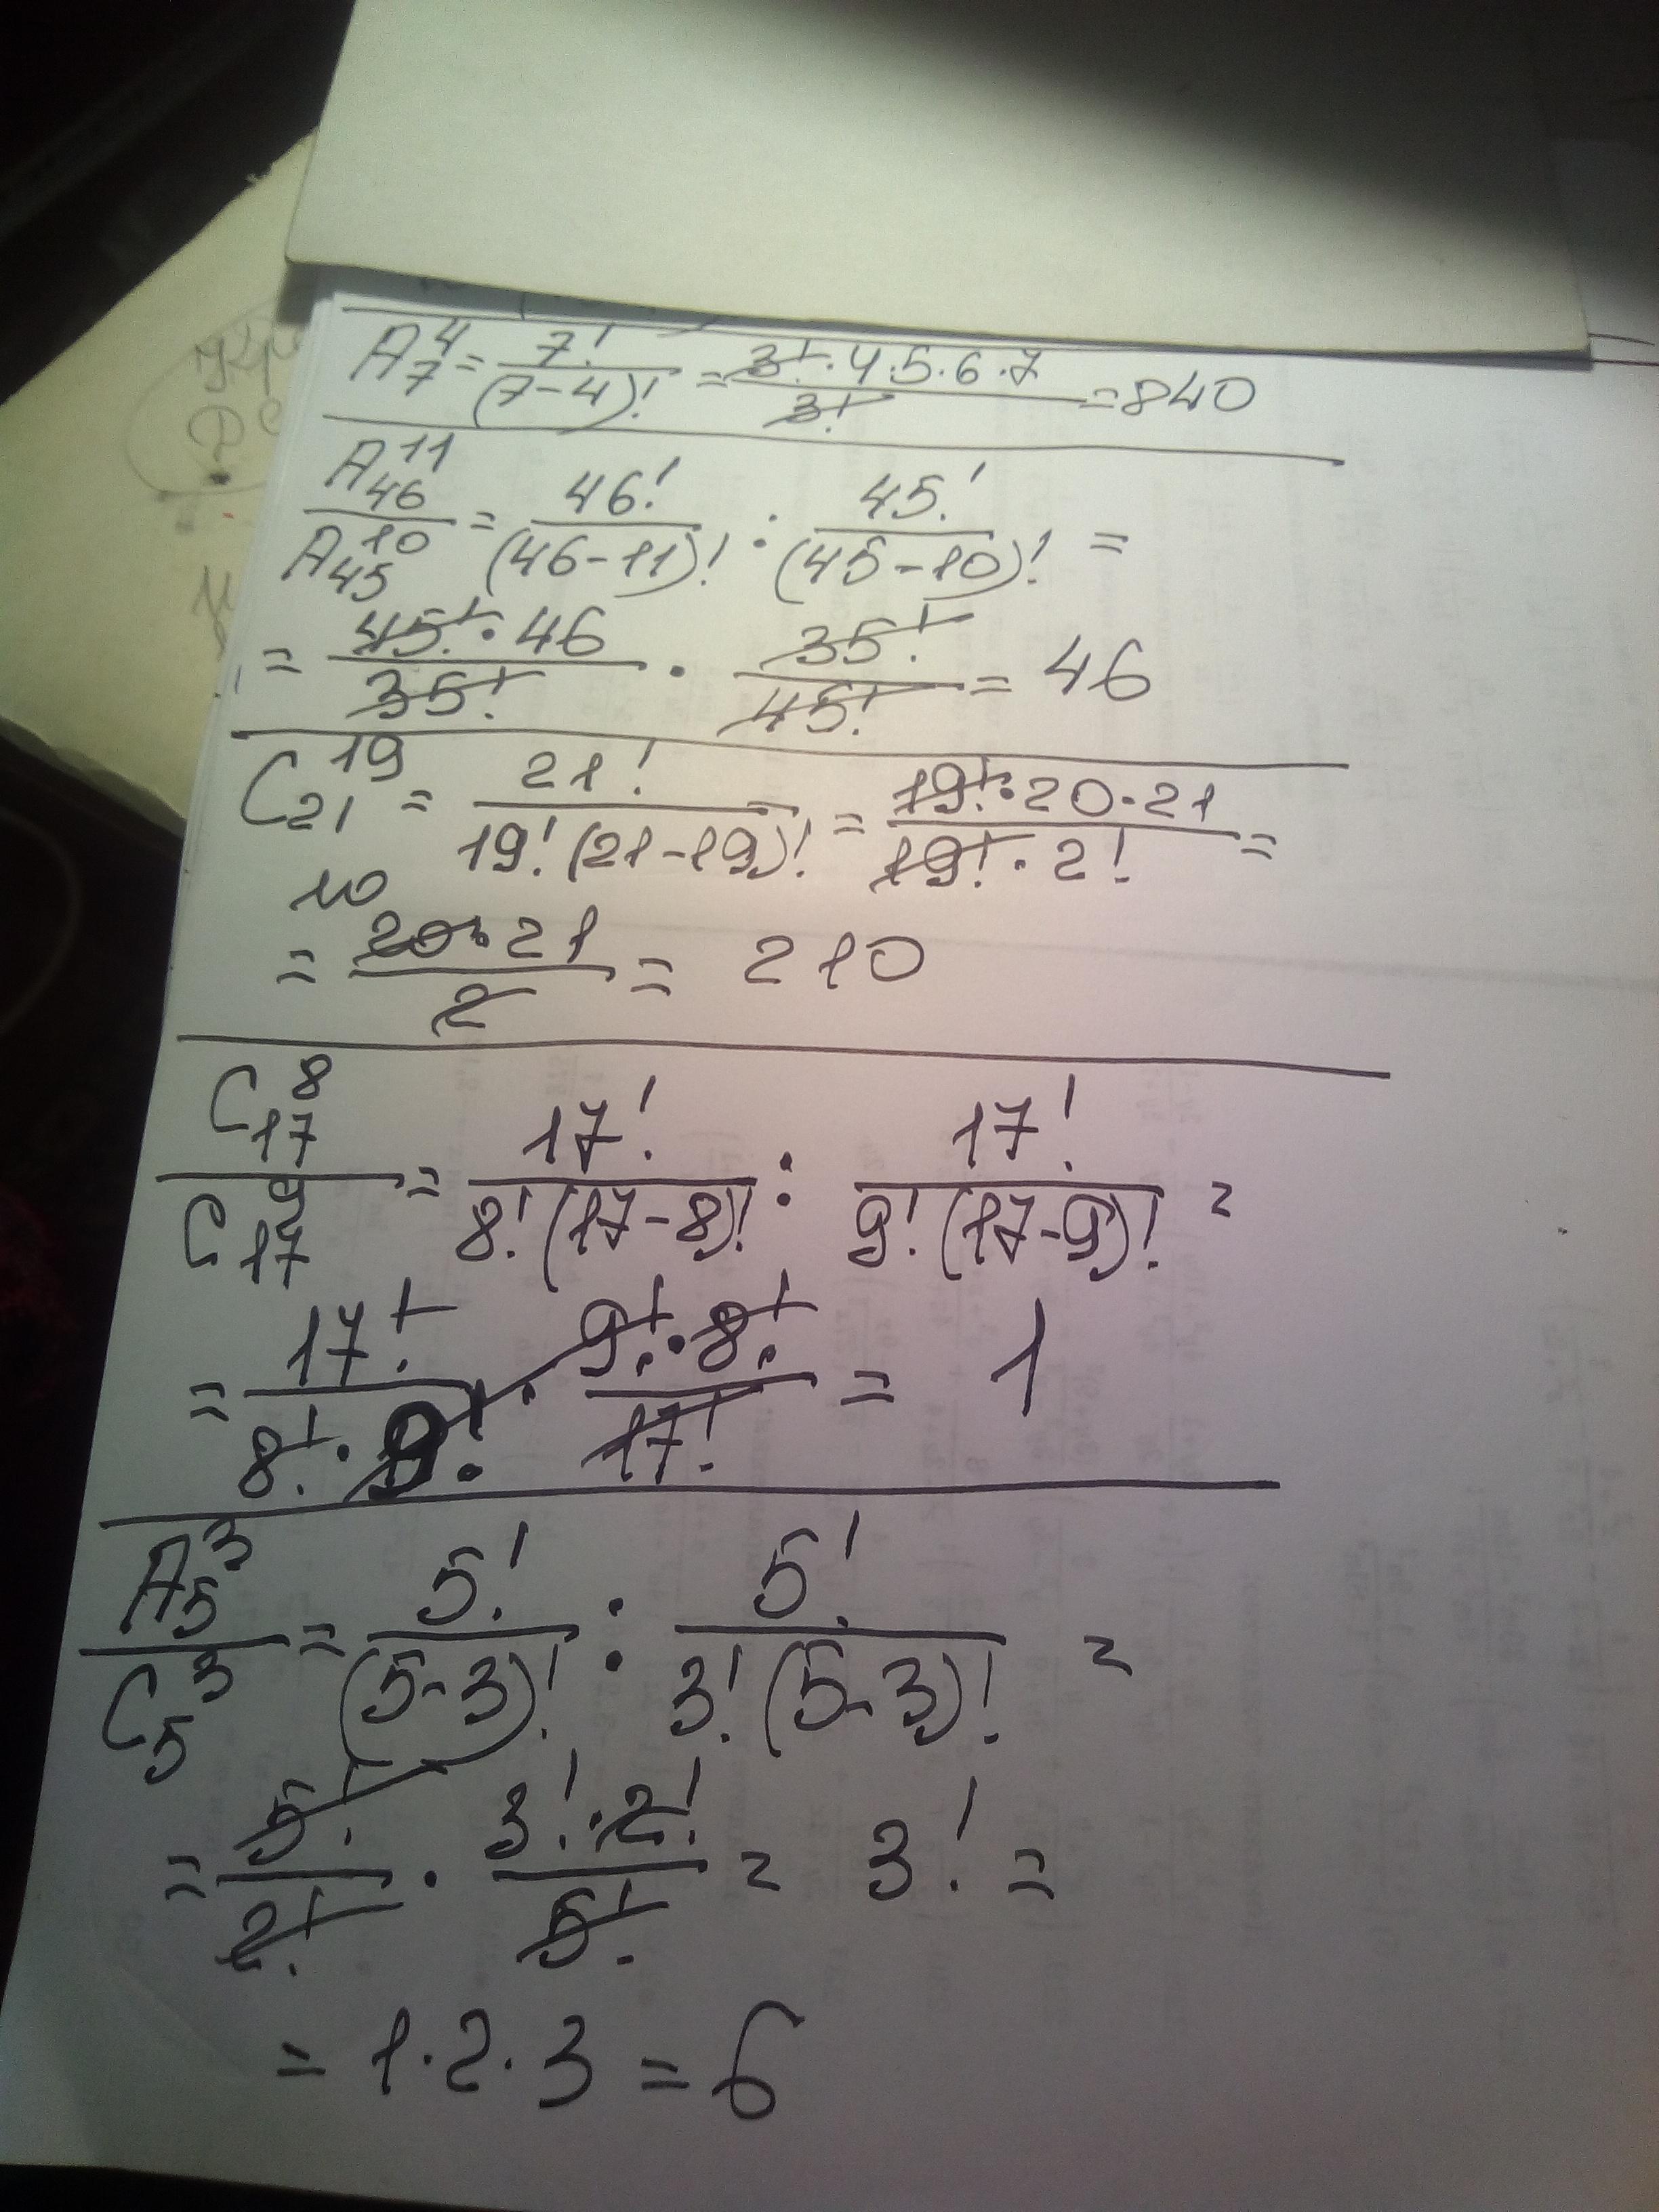 A₇⁴ = 7! / (7-4)! = 3!·4·5·6·7 / 3! = 840
A₄₆¹¹ / A₄₅¹⁰ = 46! / (46-11)! : 45! / (45-10)! =
= 45!·46 / 35! · 35! / 45! = 46
C₂₁¹⁹ = 21! / 19!(21-19)! = 19!·20·21 / 19!·2! =
10
= 20·21 / 2 = 210
C₁₇⁸ / C₁₇⁹ = 17! / 8!(17-8)! : 17! / 9!(17-9)! =
= 17! / 8!·9! · 9!·8! / 17! = 1
A₅³ / C₅³ = 5! / (5-3)! : 5! / 3!(5-3)! =
= 5! / 2! · 3!·2! / 5! = 3! =
= 1·2·3 = 6